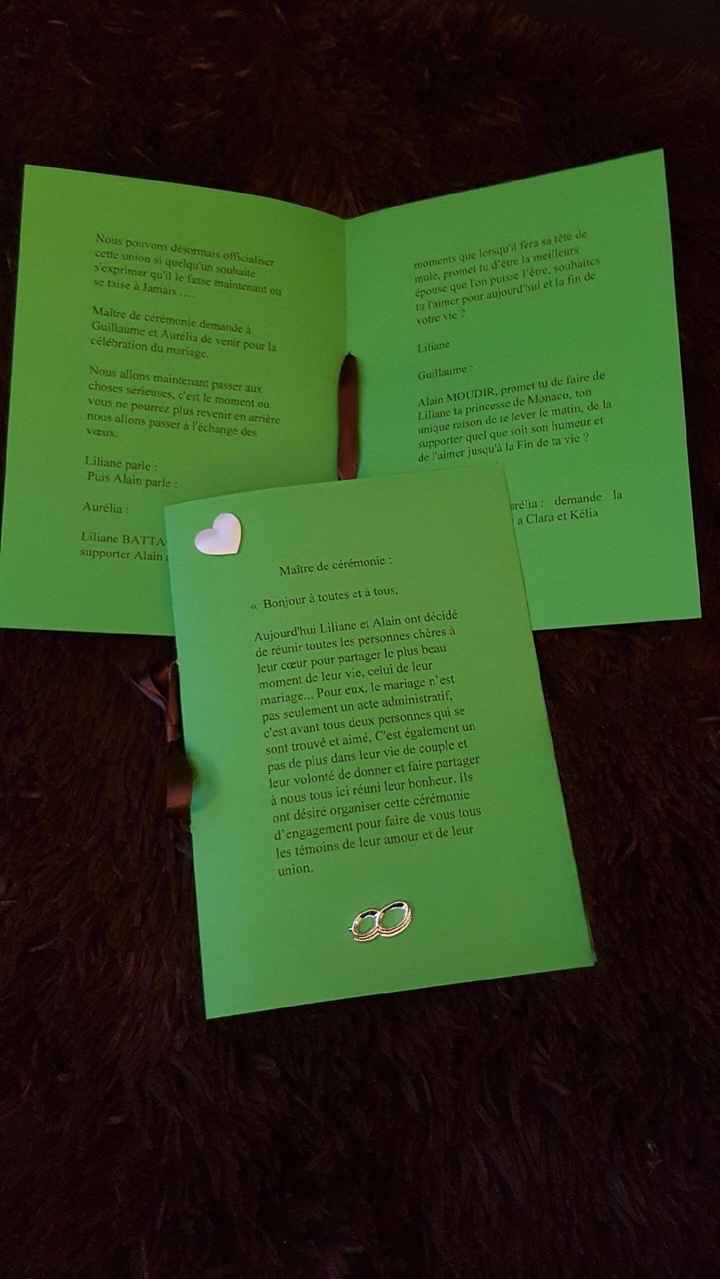 Nous pouvons désormais officialiser
cette union si quelqu'un souhaite
s'exprimer qu'il le fasse maintenant ou
se taise à Jamais .....
Maître de cérémonie demande à
Guillaume et Aurélia de venir pour la
célébration du mariage.
Nous allons maintenant passer aux
choses sérieuses, c'est le moment ou
vous ne pourrez plus revenir en arrière
nous allons passer à l'échange des
vœux.
Liliane parle :
Puis Alain parle :
Aurélia :
Liliane BATTA
supporter Alain
moments que lorsqu'il fera sa tête de
mule, promet tu d'être la meilleurs
épouse que l'on puisse l'être, souhaites
tu l'aimer pour aujourd'hui et la fin de
votre vie ?
Liliane
Guillaume :
Alain MOUDIR, promet tu de faire de
Liliane ta princesse de Monaco, ton
unique raison de te lever le matin, de la
supporter quel que soit son humeur et
de l'aimer jusqu'à la Fin de ta vie ?
urélia : demande la
a Clara et Kélia
Maître de cérémonie :
« Bonjour à toutes et à tous,
Aujourd'hui Liliane et Alain ont décidé
de réunir toutes les personnes chères à
leur cœur pour partager le plus beau
moment de leur vie, celui de leur
mariage... Pour eux, le mariage n'est
pas seulement un acte administratif,
c'est avant tous deux personnes qui se
sont trouvé et aimé, C'est également un
pas de plus dans leur vie de couple et
leur volonté de donner et faire partager
à nous tous ici réuni leur bonheur. Ils
ont désiré organiser cette cérémonie
d'engagement pour faire de vous tous
les témoins de leur amour et de leur
union.